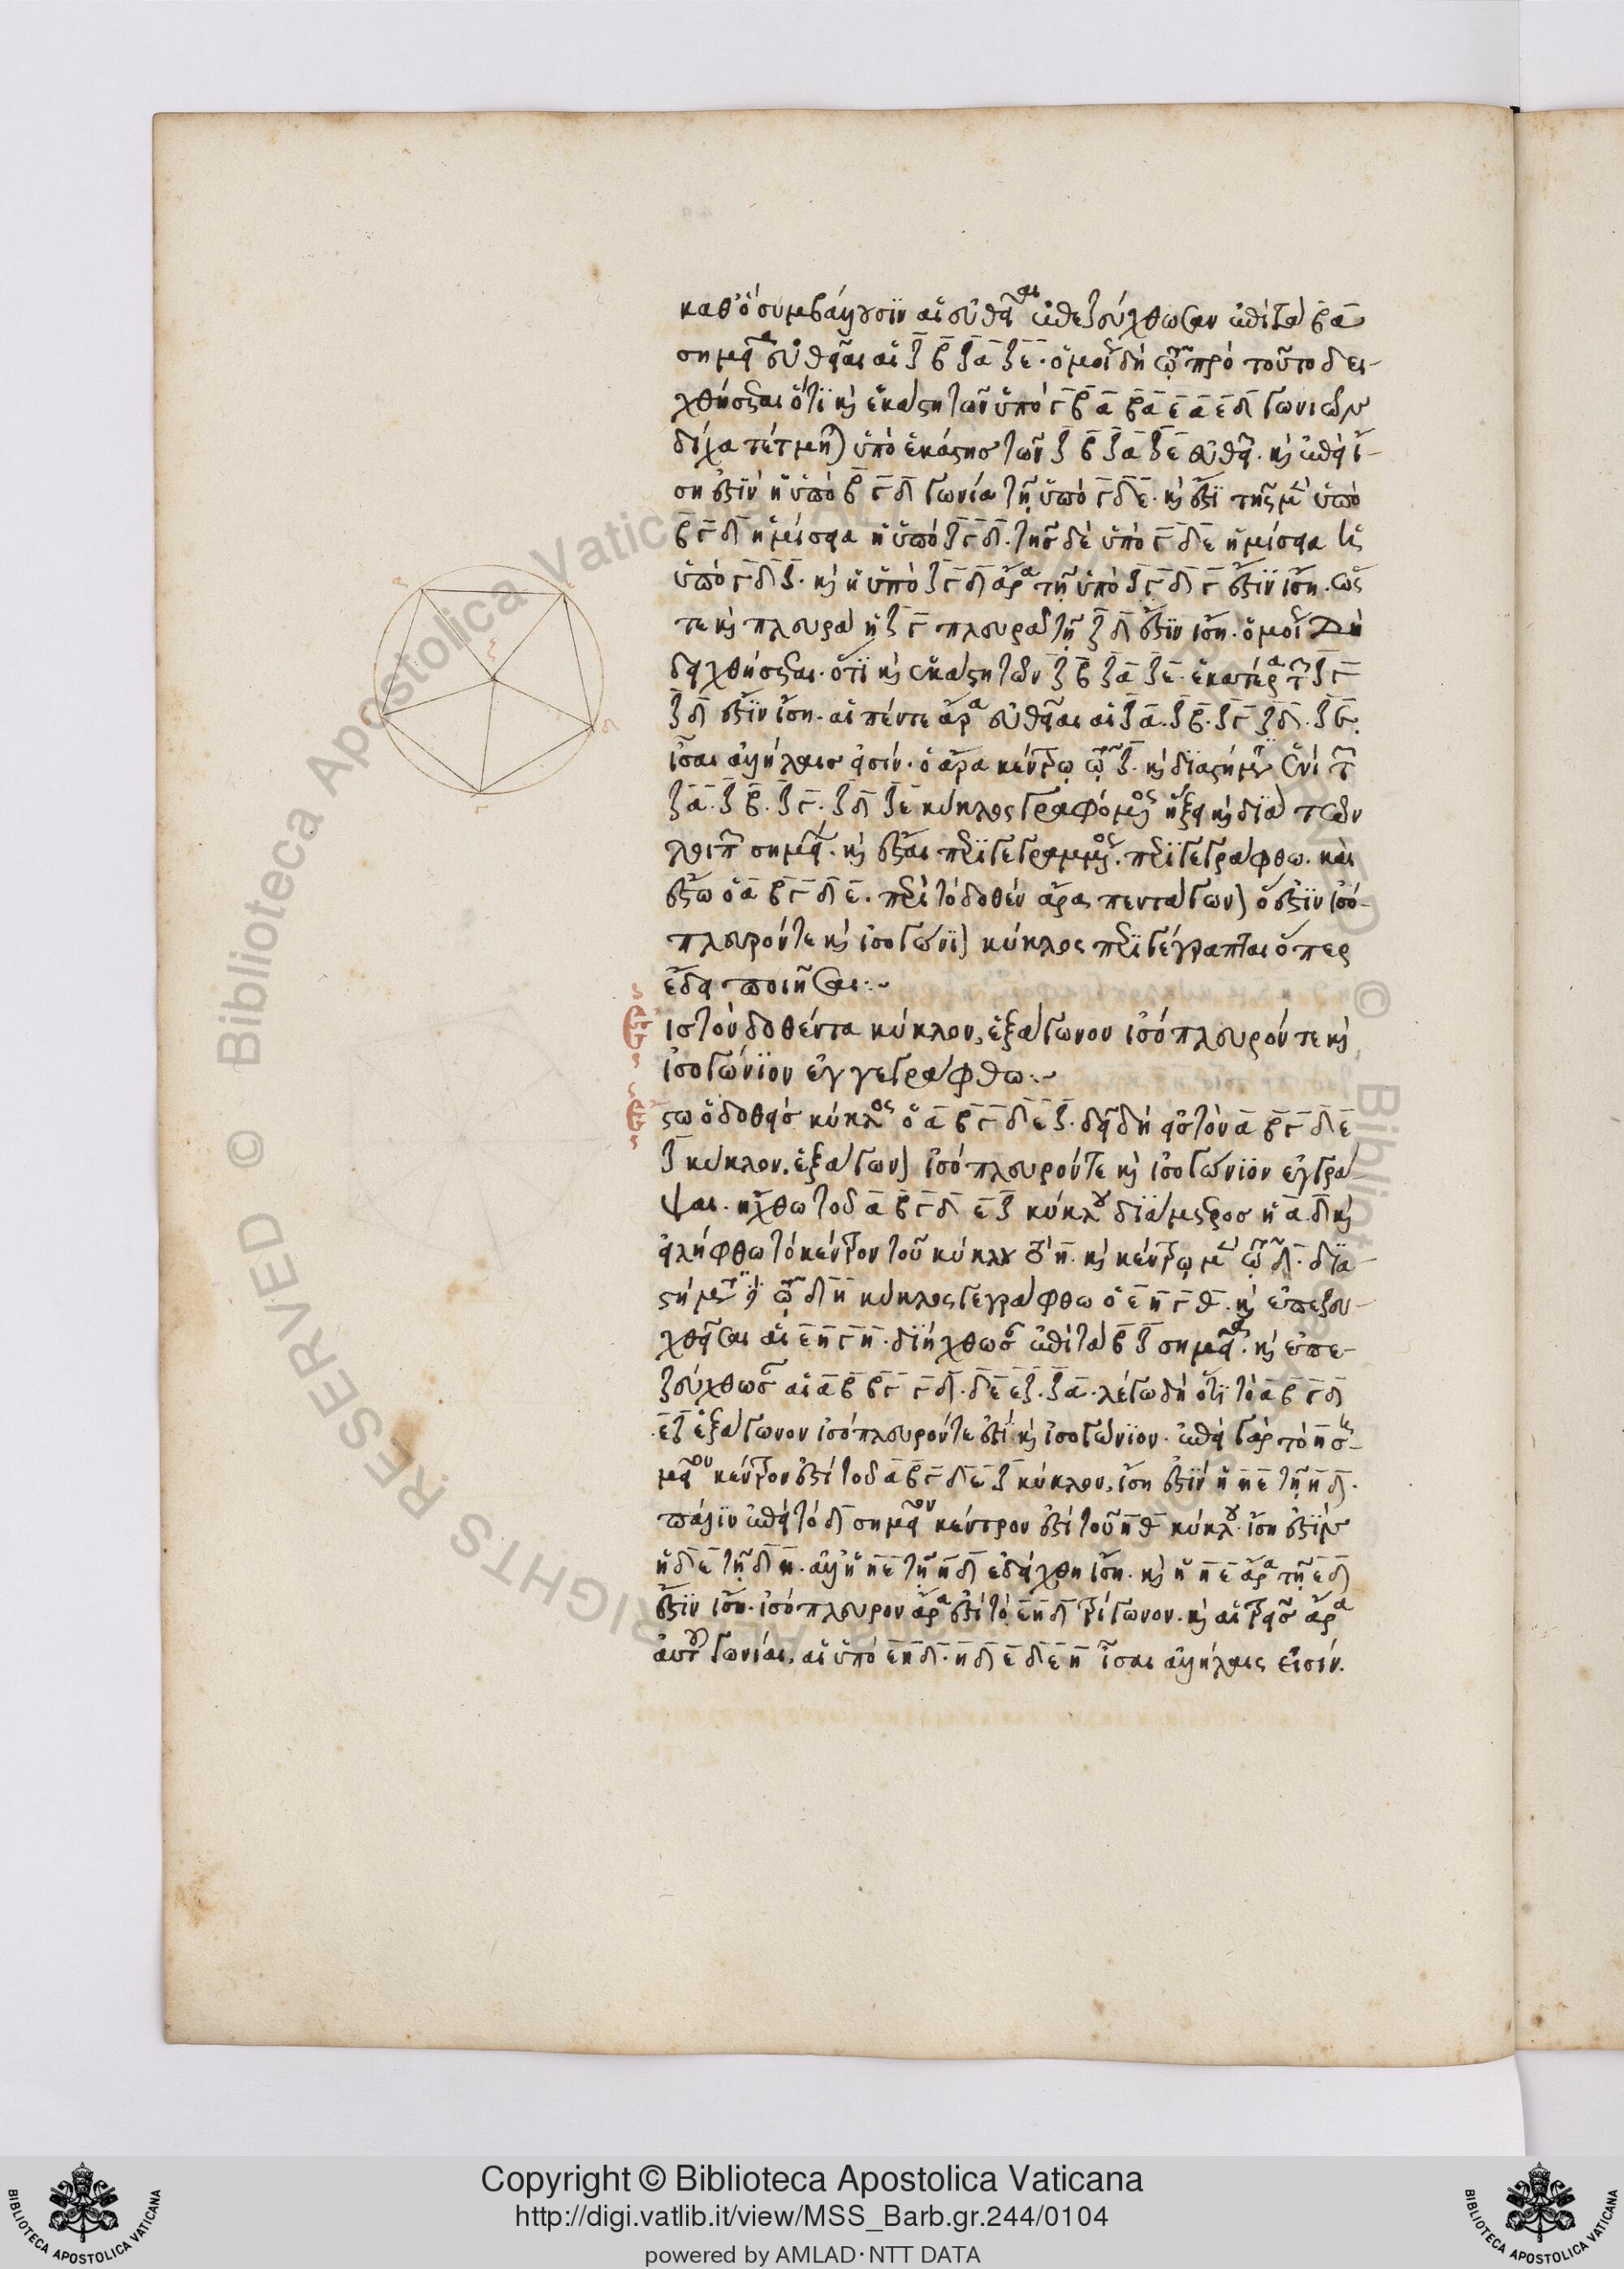 καθ' ὃ συμβάλλουσιν αἱ εὐθεῖαι ἐπεζεύχθωσαν ἐπὶ τὰ β̄ ᾱ
σημεῖα εὐθεῖαι αἱ ζ̄ β̄ ζ̄ ᾱ ζ̄ ε̄. ὁμοίως δὴ τῷ πρὸ τούτου δει-
χθήσεται ὅτι καὶ ἑκάστη τῶν ὑπὸ γ̄ β̄ ᾱ β̄ ᾱ ε̄ ᾱ ε̄ δ̄ γωνιῶν
δίχα τέτμηται ὑπὸ ἑκάστης τῶν ζ̄ β̄ ζ̄ ᾱ ζ̄ ε̄ εὐθειῶν. καὶ ἐπεὶ ἴ-
ση ἐστὶν ἡ ὑπὸ β̄ γ̄ δ̄ γωνία τῇ ὑπὸ γ̄ δ̄ ε̄. καί ἐστι τῆς μὲν ὑπὸ
β̄ γ̄ δ̄ ἡμίσεια ἡ ὑπὸ ζ̄ γ̄ δ̄. τῆς δὲ ὑπὸ γ̄ δ̄ ε̄ ἡμίσεια ἡ
ὑπὸ γ̄ δ̄ ζ̄. καὶ ἡ ὑπὸ ζ̄ γ̄ δ̄ ἄρα τῇ ὑπὸ ζ̄ γ̄ δ̄ γ̄ ἐστὶν ἴση. ὥς
τε καὶ πλευρὰ ἡ ζ̄ γ̄ πλευρᾷ τῇ ζ̄ δ̄ ἐστὶν ἴση. ὁμοίως δὴ
δειχθήσεται. ὅτι καὶ ἑκάστη τῶν ζ̄ β̄ ζ̄ ᾱ ζ̄ ε̄. ἑκατέρα τῶν ζ̄ γ̄
ζ̄ δ̄ ἐστὶν ἴση. αἱ πέντε ἄρα εὐθεῖαι αἱ ζ̄ ᾱ. ζ̄ β̄. ζ̄ γ̄ ζ̄ δ̄. ζ̄ ε̄.
ἴσαι ἀλλήλαις εἰσίν. ὁ ἄρα κέντρῳ τῷ ζ̄. καὶ διαστήματι ἑνὶ τῶν
ζ̄ ᾱ. ζ̄ β̄. ζ̄ γ̄. ζ̄ δ̄ ζ̄ ε̄ κύκλος γραφόμενος ἥξει καὶ διὰ τῶν
λοιπῶν σημείων. καὶ ἔσται περιγεγραμμένος. περιγεγράφθω. καὶ
ἔστω ὁ ᾱ β̄ γ̄ δ̄ ε̄. περὶ τὸ δοθὲν ἄρα πεντάγωνον ὅ ἐστιν ἰσό-
πλευρόν τε καὶ ἰσογώνιον κύκλος περιγέγραπται ὅπερ
ἔδει ποιῆσαι:~
Εἰς τὸν δοθέντα κύκλον, ἑξάγωνον ἰσόπλευρόν τε καὶ
ἰσογώνιον ἐγγεγράφθω:~
Ἔστω ὁ δοθεὶς κύκλος ὁ ᾱ β̄ γ̄ δ̄ ε̄ ζ̄. δεῖ δὴ εἰς τὸν ᾱ β̄ γ̄ δ̄ ε̄
ζ̄ κύκλον. ἑξάγωνον ἰσόπλευρόν τε καὶ ἰσογώνιον ἐγγρά
ψαι. ἤχθω τοῦ ᾱ β̄ γ̄ δ̄ ε̄ ζ̄ κύκλου διάμετρος ἡ ᾱ δ̄ καὶ
εἰλήφθω τὸ κέντρον τοῦ κύκλου τὸ η̄. καὶ κέντρῳ μὲν τῷ δ̄. δια-
στήματι δὲ τῷ δ̄ η̄ κύκλος γεγράφθω ὁ ε̄ η̄ γ̄ θ̄. καὶ ἐπεζευ-
χθεῖσαι αἱ ε̄ η̄ γ̄ η̄. διήχθωσαν ἐπὶ τὰ β̄ ζ̄ σημεῖα. καὶ ἐπε-
ζεύχθωσαν αἱ ᾱ β̄ β̄ γ̄ γ̄ δ̄. δ̄ ε̄ ε̄ ζ̄. ζ̄ ᾱ. λέγω δὴ ὅτι τὸ ᾱ β̄ γ̄ δ̄
ε̄ ζ̄ ἑξάγωνον ἰσόπλευρόν τέ ἐστι καὶ ἰσογώνιον. ἐπεὶ γὰρ τὸ η̄ ση-
μεῖον κέντρον ἐστὶ τοῦ ᾱ β̄ γ̄ δ̄ ε̄ ζ̄ κύκλου, ἴση ἐστὶν ἡ η̄ ε̄ τῇ η̄ δ̄.
πάλιν ἐπεὶ τὸ δ̄ σημεῖον κέντρον ἐστὶ τοῦ η̄ θ̄ κύκλου. ἴση ἐστὶν
ἡ δ̄ ε̄ τῇ δ̄ η̄. ἀλλ' ἡ η̄ ε̄ τῇ η̄ δ̄ ἐδείχθη ἴση. καὶ ἡ η̄ ε̄ ἄρα τῇ ε̄ δ̄
ἐστὶν ἴση. ἰσόπλευρον ἄρα ἐστὶ τὸ ε̄ η̄ δ̄ τρίγωνον. καὶ αἱ τρεῖς ἄρα
αὐτοῦ γωνίαι. αἱ ὑπὸ ε̄ η̄ δ̄. η̄ δ̄ ε̄ δ̄ ε̄ η̄ ἴσαι ἀλλήλαις εἰσίν.
Copyright © Biblioteca Apostolica Vaticana
http://digi.vatlib.it/view/MSS_Barb.gr.244/0104
powered by AMLAD·NTT DATA
BIBLIOTECA APOSTOLICA VATICANA
BIBLIOTECA APOSTOLICA VATICANA